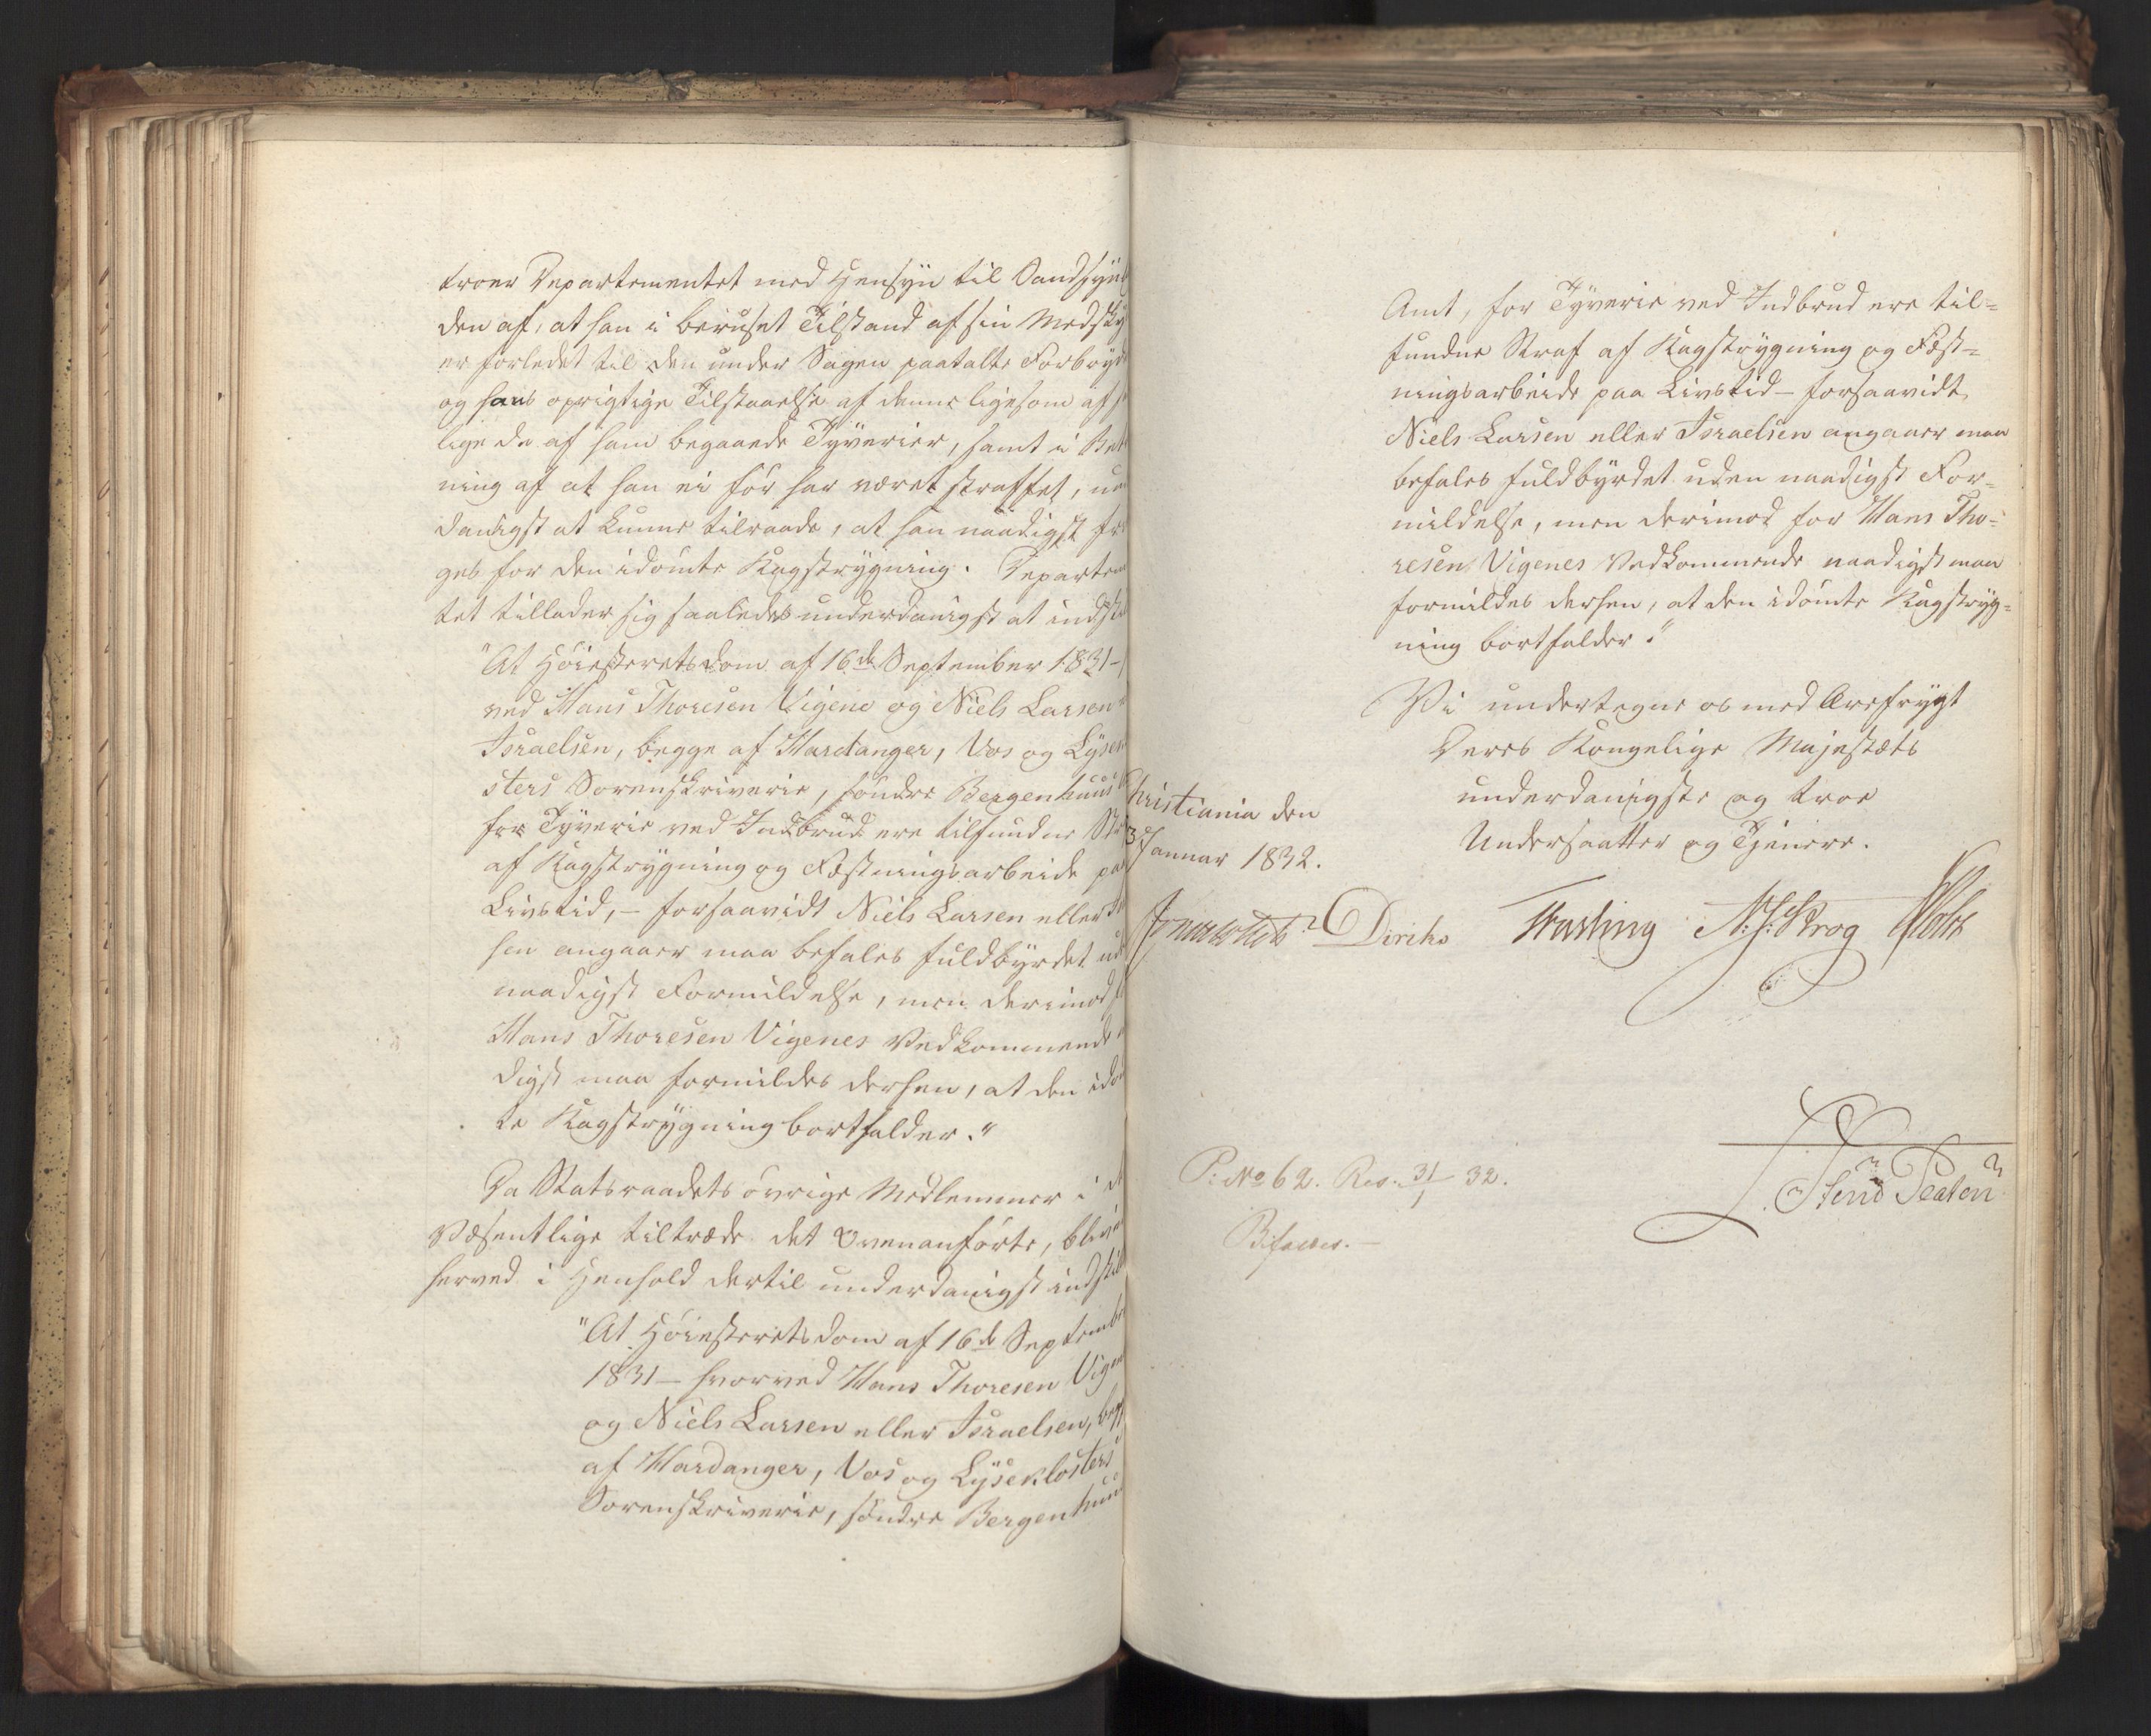 troer Departementet med Hensyn til Sandsyn
den af, at han i beruset Tilstand af sin Medsky
er forledet til den under Sagen paatalte Forbryd
og hans oprigtige Tilstaaelse af denne ligesom af
lige de af ham begaaede Tyverier, samt i Bet
ning af at han ei før har været straffet, un
danigst at kunne tilraade, at han naadigst fri
ges for den idømte Kagstrygning. Departem
tet tillader sig saaledes underdanigst at indstil
"At Høiesteretsdom af 16de September 1831 -
ved Hans Thoresen Vigene og Niels Larsen
Israelsen, begge af Hardanger, Vos og Lyse
sters Sorenskriverie, søndre Bergenhuus
for Tyverie ved Indbrud ere tilfundne Str
af Kagstrygning og Fæstningsarbeide paa
Livstid, - forsaavidt Niels Larsen eller Is
sen angaaer maa befales fuldbyrdet ud
naadigst Formildelse, men derimod f
Hans Thoresen Vigenes Vedkommende
digst maa formildes derhen, at den idøm
te Kagstrygning bortfalder."
Da Statsraadets øvrige Medlemmer i det
Væsentlige tiltræde det Ovenanførte, bliver
herved i Henhold dertil underdanigst indstill
"At Høiesteretsdom af 16de Septembe
1831 - hvorved Hans Thoresen Vigen
og Niels Larsen eller Israelsen, begge
af Hardanger, Vos og Lyseklosters
Sorenskriverie, søndre Bergenhuus
Amt, for Tyverie ved Indbrud ere til-
fundne Straf af Kagstrygning og Fæst-
ningsarbeide paa Livstid - forsaavidt
Niels Larsen eller Israelsen angaaer maa
befales fuldbyrdet uden naadigst For-
mildelse, men derimod for Hans Tho-
resen Vigenes Vedkommende naadigst maa
formildes derhen, at den idømte Kagstryg-
ning bortfalder."
Vi undertegne os med Ærefrygt
Deres Kongelige Majestæts
underdanigste og troe
Undersaatter og Tjenere.
Christiania den
3 Januar 1832.
Diriks Fasting N. J. Krog Holst
P: No 62. Res. 31/1 32.
Bifaldes. -